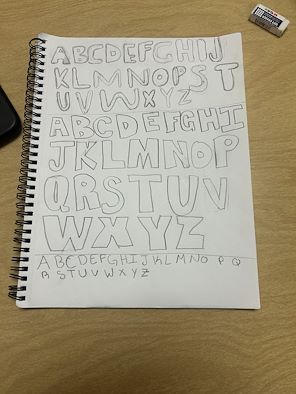 ABCDEFGHIJ
KLMNOPST
UVWXYZ
ABCDEFGHI
JKLMNOP
QRSTUV
WXYZ
ABCDEFGHIJKLMNOPQ
RSTUVWXYZ